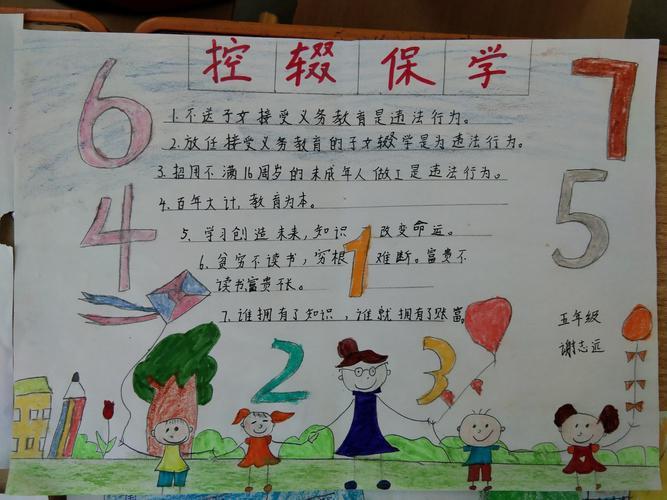 控辍保学
1.不送子女接受义务教育是违法行为。
2.放任接受义务教育的子女辍学是为违法行为。
3.招用不满16周岁的未成年人做工是违法行为。
4.百年大计,教育为本。
5.学习创造未来,知识改变命运。
6.贫穷不读书,穷根难断。富贵不
读书富贵不长。
7.谁拥有了知识,谁就拥有了账富。
五年级
谢志远
6
7
4
5
1
2
3